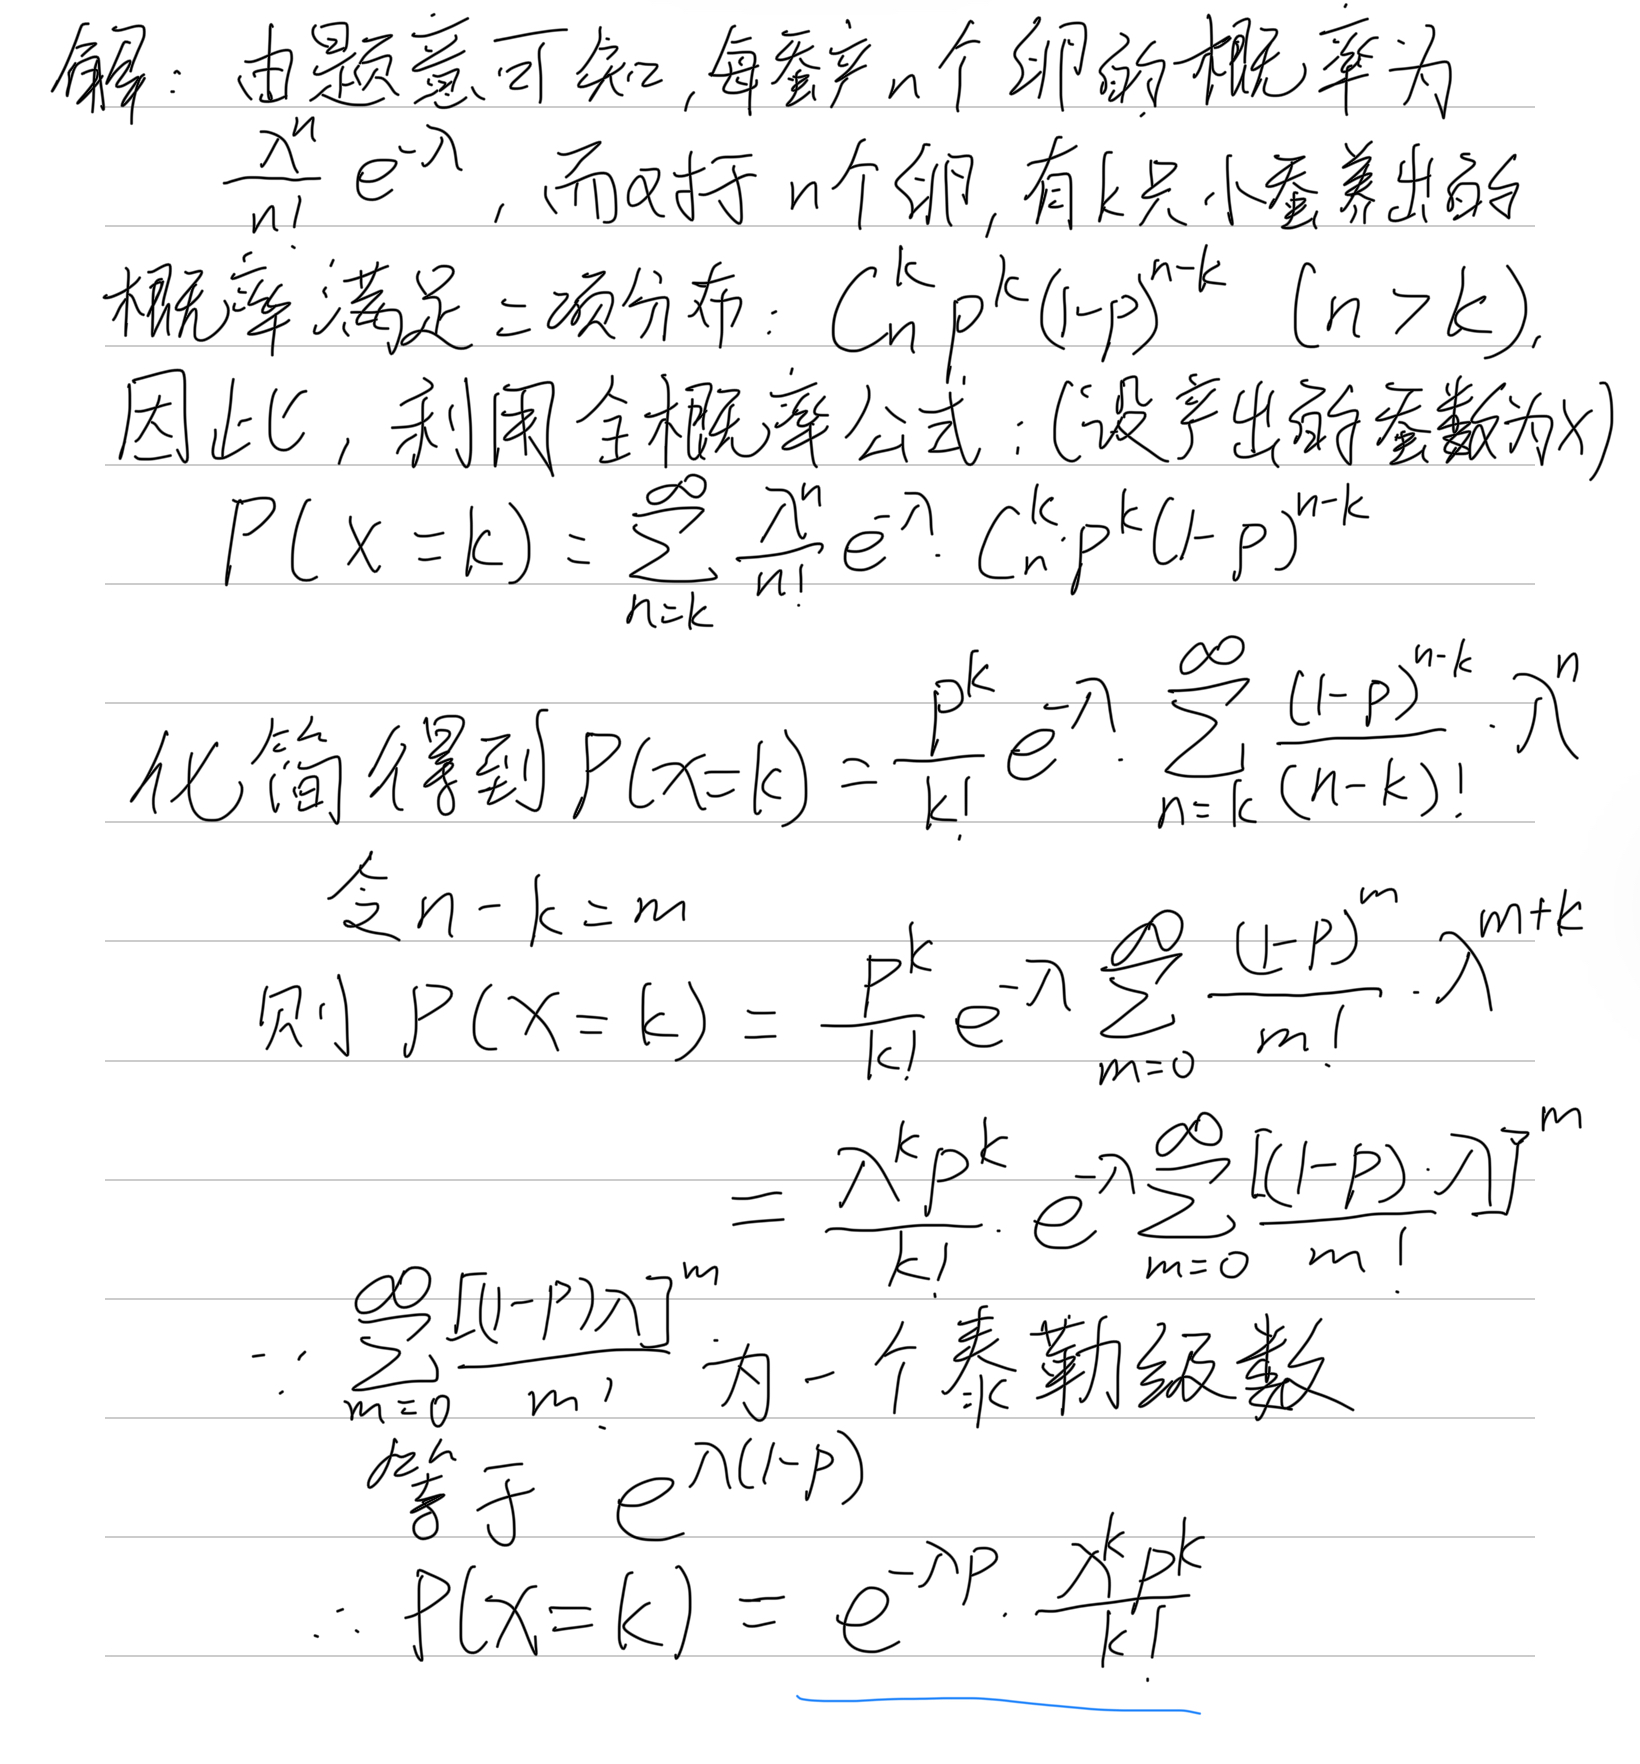 解：由题意可知,每蚕产n个卵的概率为
λ^n/n! e^{-λ}，而对于n个卵,有k只小蚕养出的
概率满足二项分布：C_n^k p^k(1-p)^{n-k} (n>k).
因此，利用全概率公式：(设产出的蚕数为X)
P(X=k)=∑_{n=k}^{∞} λ^n/n! e^{-λ}·C_n^k·p^k(1-p)^{n-k}
化简得到P(X=k)=p^k/k! e^{-λ}·∑_{n=k}^{∞} (1-p)^{n-k}/(n-k)!·λ^n
令n-k=m
则P(X=k)=p^k/k! e^{-λ} ∑_{m=0}^{∞} (1-p)^m/m!·λ^{m+k}
=λ^k p^k/k!·e^{-λ} ∑_{m=0}^{∞} [(1-p)·λ]^m/m!
∵ ∑_{m=0}^{∞} [(1-p)λ]^m/m! 为一个泰勒级数
等于 e^{λ(1-p)}
∴ P(X=k)=e^{-λp}·λ^k p^k/k!